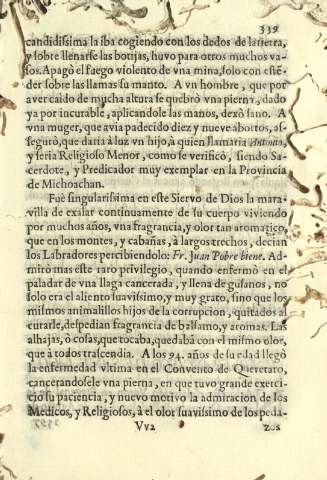 339
candidissima la iba cogiendo con los dedos de la tierra,
y sobre llenarse las botijas, huvo para otros muchos va-
sos. Apagò el fuego violento de vna mina, solo con estẽ-
der sobre las llamas su manto. A vn hombre, que por
aver caìdo de mucha altura se quebrò vna pierna, dado
ya por incurable, aplicandole las manos, dexò sano. A
vna muger, que avia padecido diez y nueve abortos, as-
segurò, que daria à luz vn hijo, à quien llamaria Antonio,
y seria Religioso Menor, como se verificò, siendo Sa-
cerdote, y Predicador muy exemplar en la Provincia
de Michoachan.
Fuè singularissima en este Siervo de Dios la mara-
villa de exalar continuamente de su cuerpo viviendo
por muchos años, vna fragrancia, y olor tan aromatico,
que en los montes, y cabañas, à largos trechos, decian
los Labradores percibiendolo: Fr. Juan Pobre biene. Ad-
mirò mas este raro privilegio, quando enfermò en el
paladar de vna llaga cancerada, y llena de gusanos, no
solo era el aliento suavissimo, y muy grato, sino que los
mismos animalillos hijos de la corrupcion, quitados al
curarle, despedian fragrancia de balsamo, y aromas. Las
alhajas, ò cosas, que tocaba, quedabã con el mismo olor,
que à todos trascendia. A los 94. años de su edad llegò
la enfermedad vltima en el Convento de Queretaro,
cancerandosele vna pierna, en que tuvo grande exerci-
cio su paciencia, y nuevo motivo la admiracion de los
Medicos, y Religiosos, à el olor suavissimo de los peda-
Vv2 zos